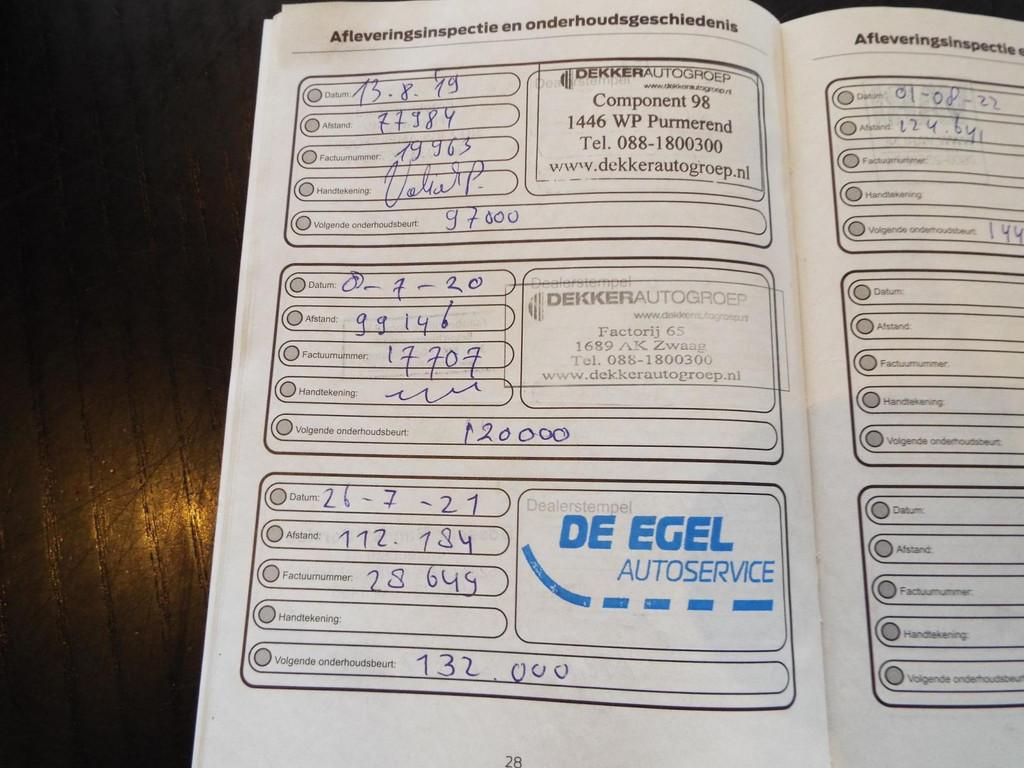 Afleveringsinspectie en onderhoudsgeschiedenis
Datum: 13.8.'19
Afstand: 77984
Factuurnummer: 19963
Handtekening:
Volgende onderhoudsbeurt: 97000
DEKKERAUTOGROEP
www.dekkerautogroep.nl
Component 98
1446 WP Purmerend
Tel. 088-1800300
www.dekkerautogroep.nl
Datum: 8-7-20
Afstand: 99146
Factuurnummer: 17707
Handtekening:
Volgende onderhoudsbeurt: 120000
Dealerstempel
DEKKERAUTOGROEP
www.dekkerautogroep.nl
Factorij 65
1689 AK Zwaag
Tel. 088-1800300
www.dekkerautogroep.nl
Datum: 26-7-21
Afstand: 112.184
Factuurnummer: 28649
Handtekening:
Volgende onderhoudsbeurt: 132.000
Dealerstempel
DE EGEL
AUTOSERVICE
28
Afleveringsinspectie e
Datum: 01-08-22
Afstand: 124.641
Factuurnummer:
Handtekening:
Volgende onderhoudsbeurt: 144
Datum:
Afstand:
Factuurnummer:
Handtekening:
Volgende onderhoudsbeurt:
Datum:
Afstand:
Factuurnummer:
Handtekening:
Volgende onderhoudsbeur